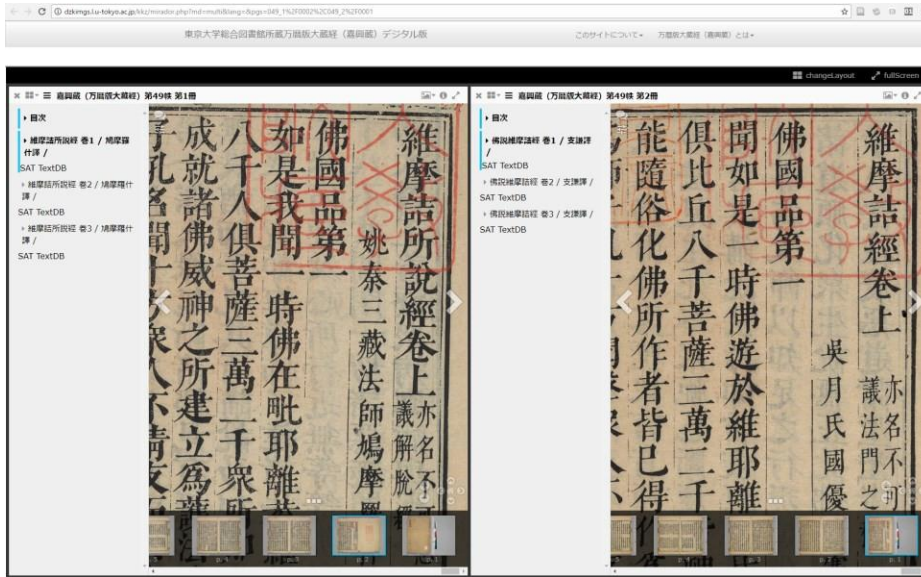 dzkimgs.l.u-tokyo.ac.jp/kkz/mirador.php?md=multi&lang=&pgs=049_1%2F0002%2C049_2%2F0001
東京大学総合図書館所蔵万暦版大蔵経（嘉興蔵）デジタル版
このサイトについて
万暦版大蔵経（嘉興蔵）とは
changeLayout
fullScreen
嘉興蔵（万暦版大蔵經）第49帙 第1冊
目次
維摩詰所説經 巻1 / 鳩摩羅
什譯 /
SAT TextDB
維摩詰所説經 巻2 / 鳩摩羅什
譯 /
SAT TextDB
維摩詰所説經 巻3 / 鳩摩羅什
譯 /
SAT TextDB
維摩詰所說經卷上
亦名不可
議解脫經
姚秦三藏法師鳩摩
佛國品第一
如是我聞一時佛在毗耶離
八千人俱菩薩三萬二千衆所
成就諸佛威神之所建立爲護法
子吼名聞十方衆人不請友
嘉興蔵（万暦版大蔵經）第49帙 第2冊
目次
佛説維摩詰經 巻1 / 支謙譯
/
SAT TextDB
佛説維摩詰經 巻2 / 支謙譯 /
SAT TextDB
佛説維摩詰經 巻3 / 支謙譯 /
SAT TextDB
維摩詰經卷上
亦名不可
議法門之
吳月氏國優
佛國品第一
聞如是一時佛遊於維耶離
俱比丘八千菩薩三萬二千
能隨俗化佛所作者皆已得作